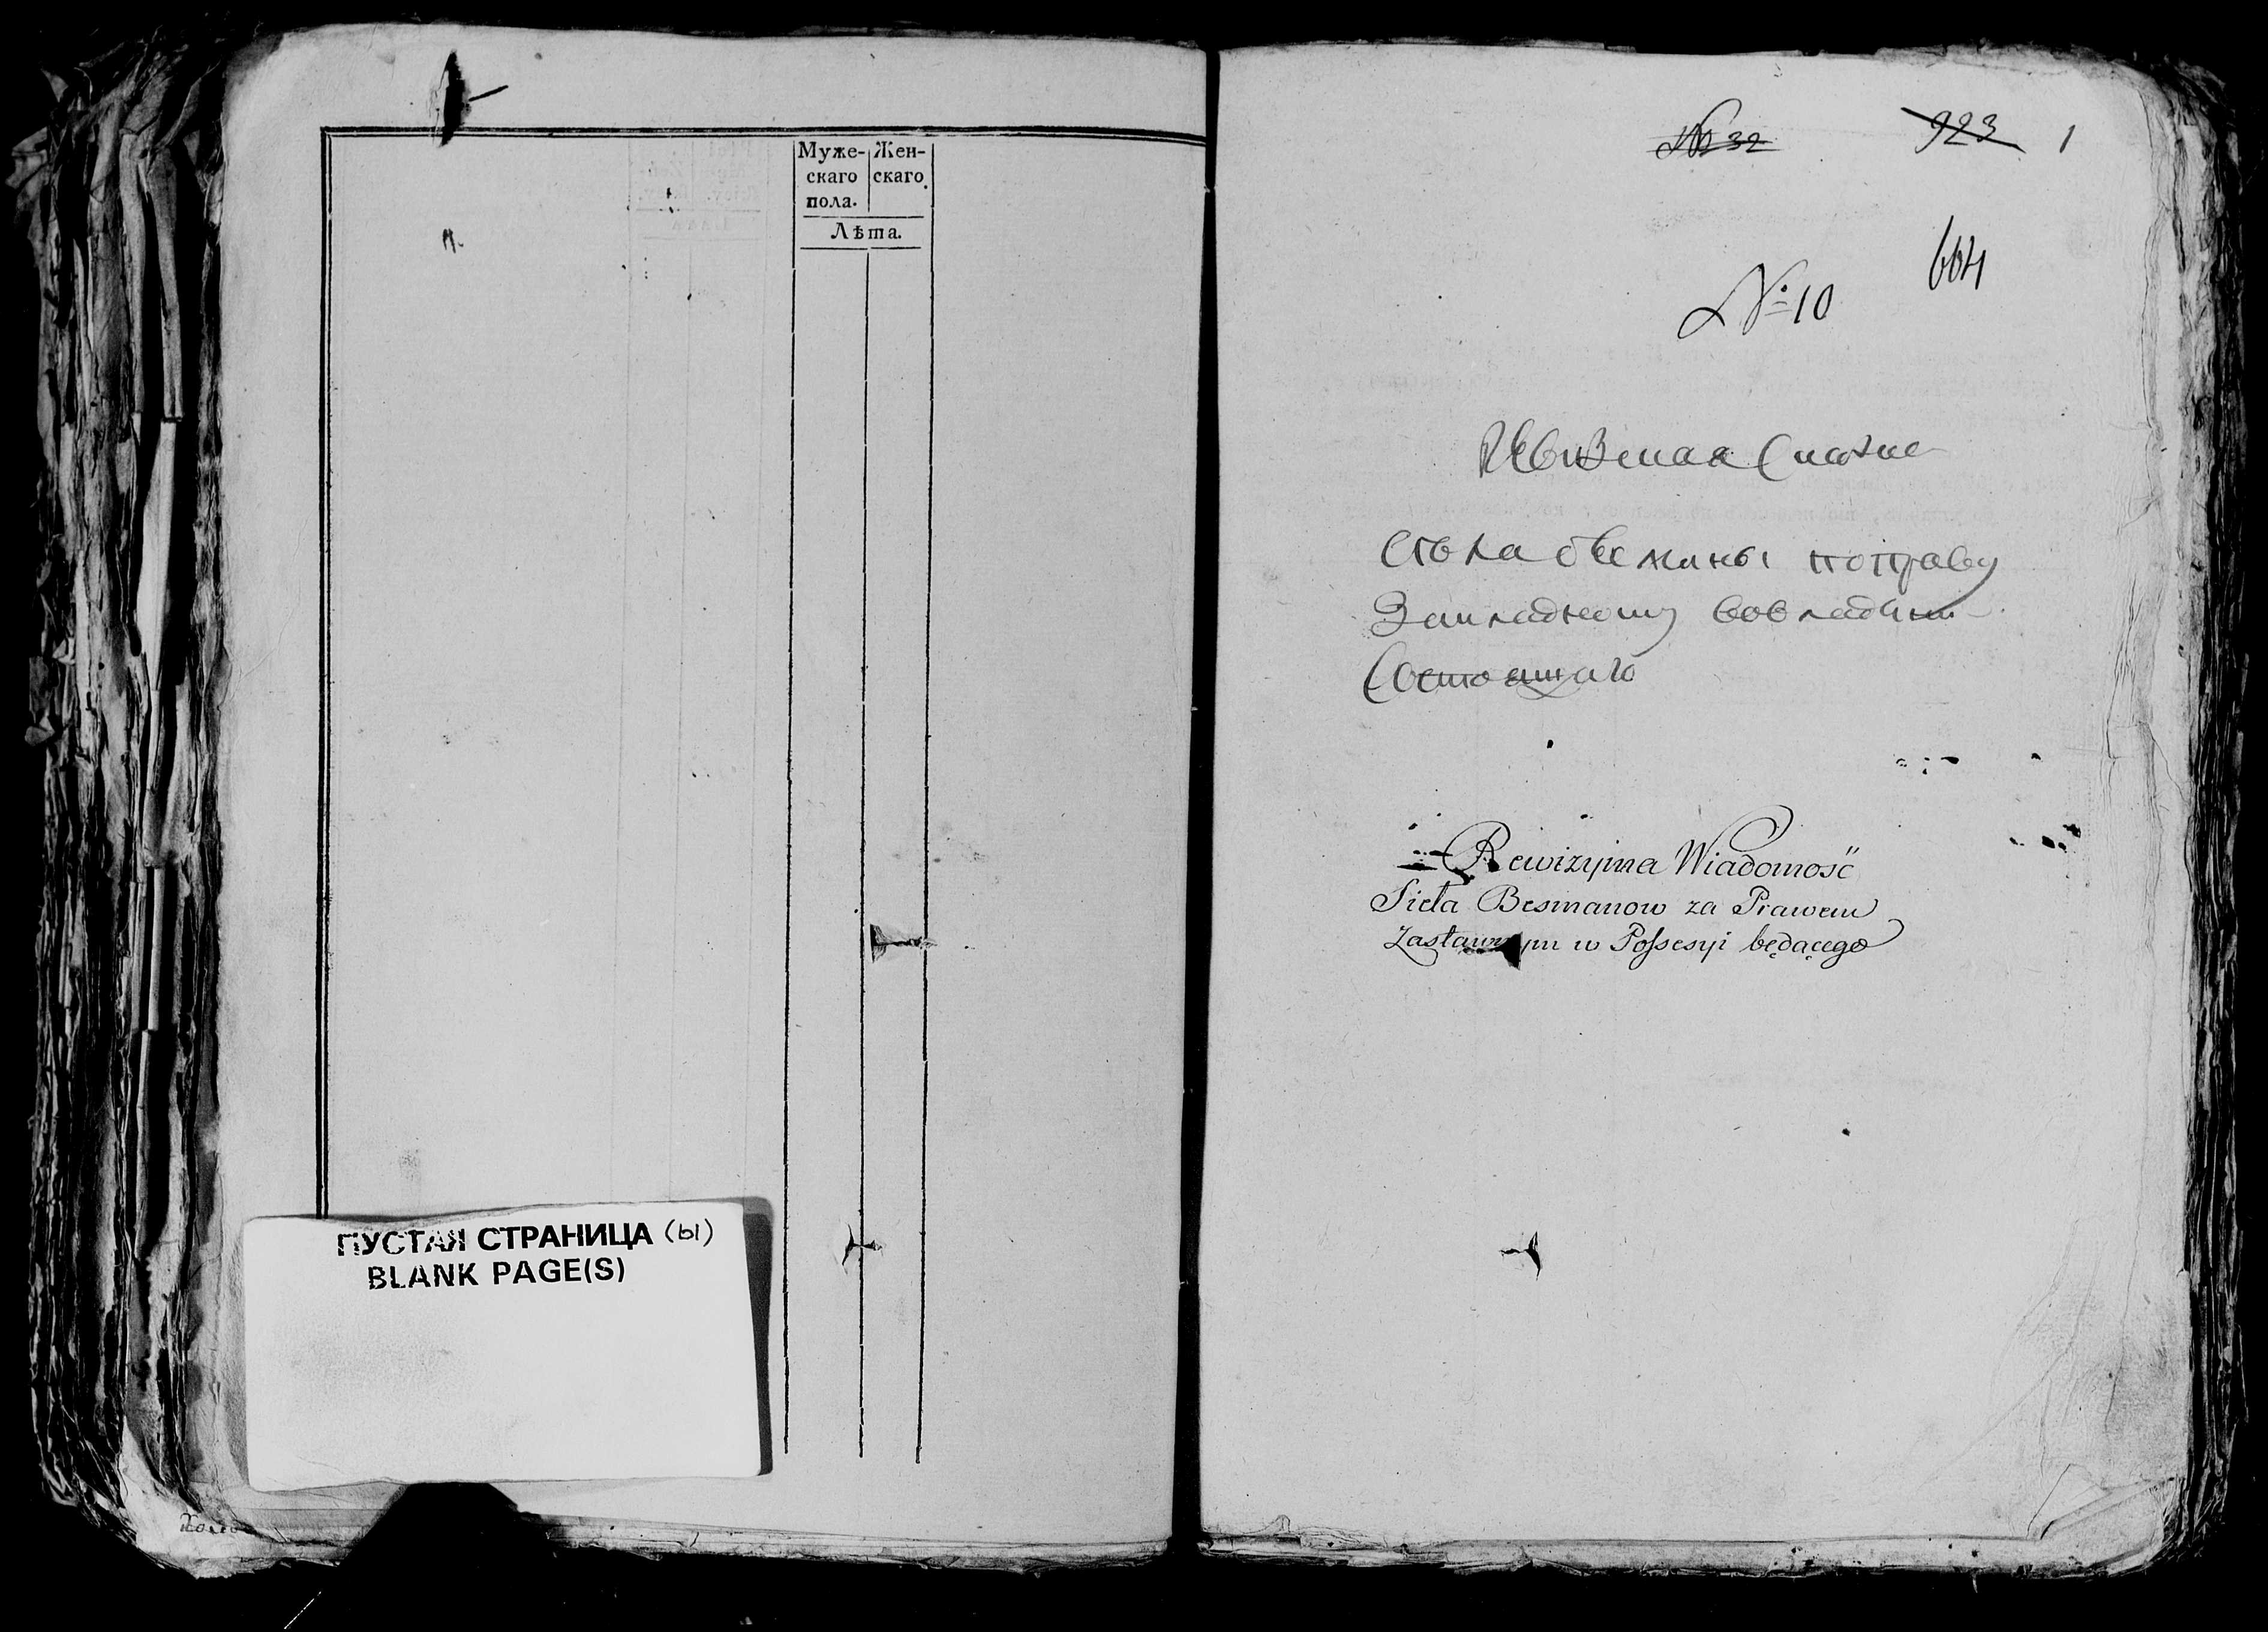 Муже- Жен-
скаго скаго.
пола.
Лѣта.
ПУСТАЯ СТРАНИЦА (ы)
BLANK PAGE(S)
№ 32 923 1
664
№ 10
Ревизская Сказка
Села поправу
Закладному вовладении
Состоящаго
Rewizyina Wiadomość
Sieła Besmanow za Prawem
Zastawnym w Possesyi będącego